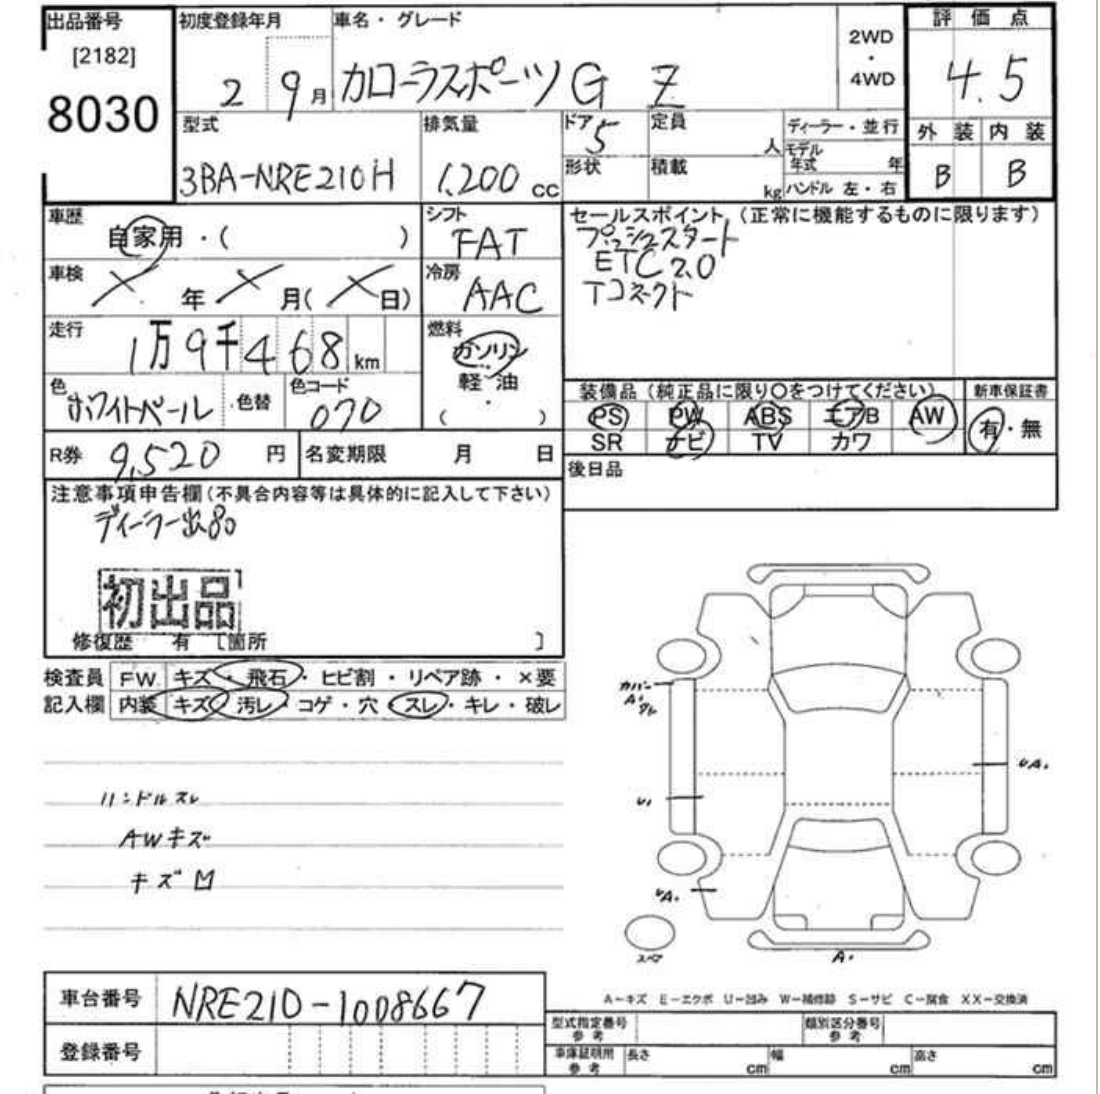 出品番号
[2182]
8030
初度登録年月
2 9月
車名・グレード
カローラスポーツ G Z
2WD
・
4WD
評価点
4.5
外装 内装
B B
型式
3BA-NRE210H
排気量
1,200 cc
ドア 5
定員 人
形状
積載 kg
ディーラー・並行
モデル年式 年
ハンドル 左・右
車歴
自家用・( )
シフト
FAT
車検
× 年 × 月( × 日)
冷房
AAC
走行
1万9千468km
燃料
ガソリン
軽油
・
( )
色
ホワイトパール
色替
色コード
070
R券 9,520 円
名変期限 月 日
セールスポイント (正常に機能するものに限ります)
プッシュスタート
ETC2.0
Tコネクト
装備品 (純正品に限り○をつけてください)
新車保証書
PS PW ABS エアB AW
SR ナビ TV カワ
有・無
後日品
注意事項申告欄(不具合内容等は具体的に記入して下さい)
初出品
修復歴 有 [箇所 ]
検査員
記入欄
FW. キズ・飛石・ヒビ割・リペア跡・×要
内装 キズ・汚レ・コゲ・穴・スレ・キレ・破レ
ハンドルスレ
AWキズ
キズ凹
カバー
A1
ズレ
U1
UA1
UA1
スペア
A1
A−キズ E−エクボ U−凹み W−補修跡 S−サビ C−腐食 XX−交換済
車台番号
NRE210-1008667
登録番号
型式指定番号
参考
類別区分番号
参考
車庫証明用
参考
長さ cm
幅 cm
高さ cm